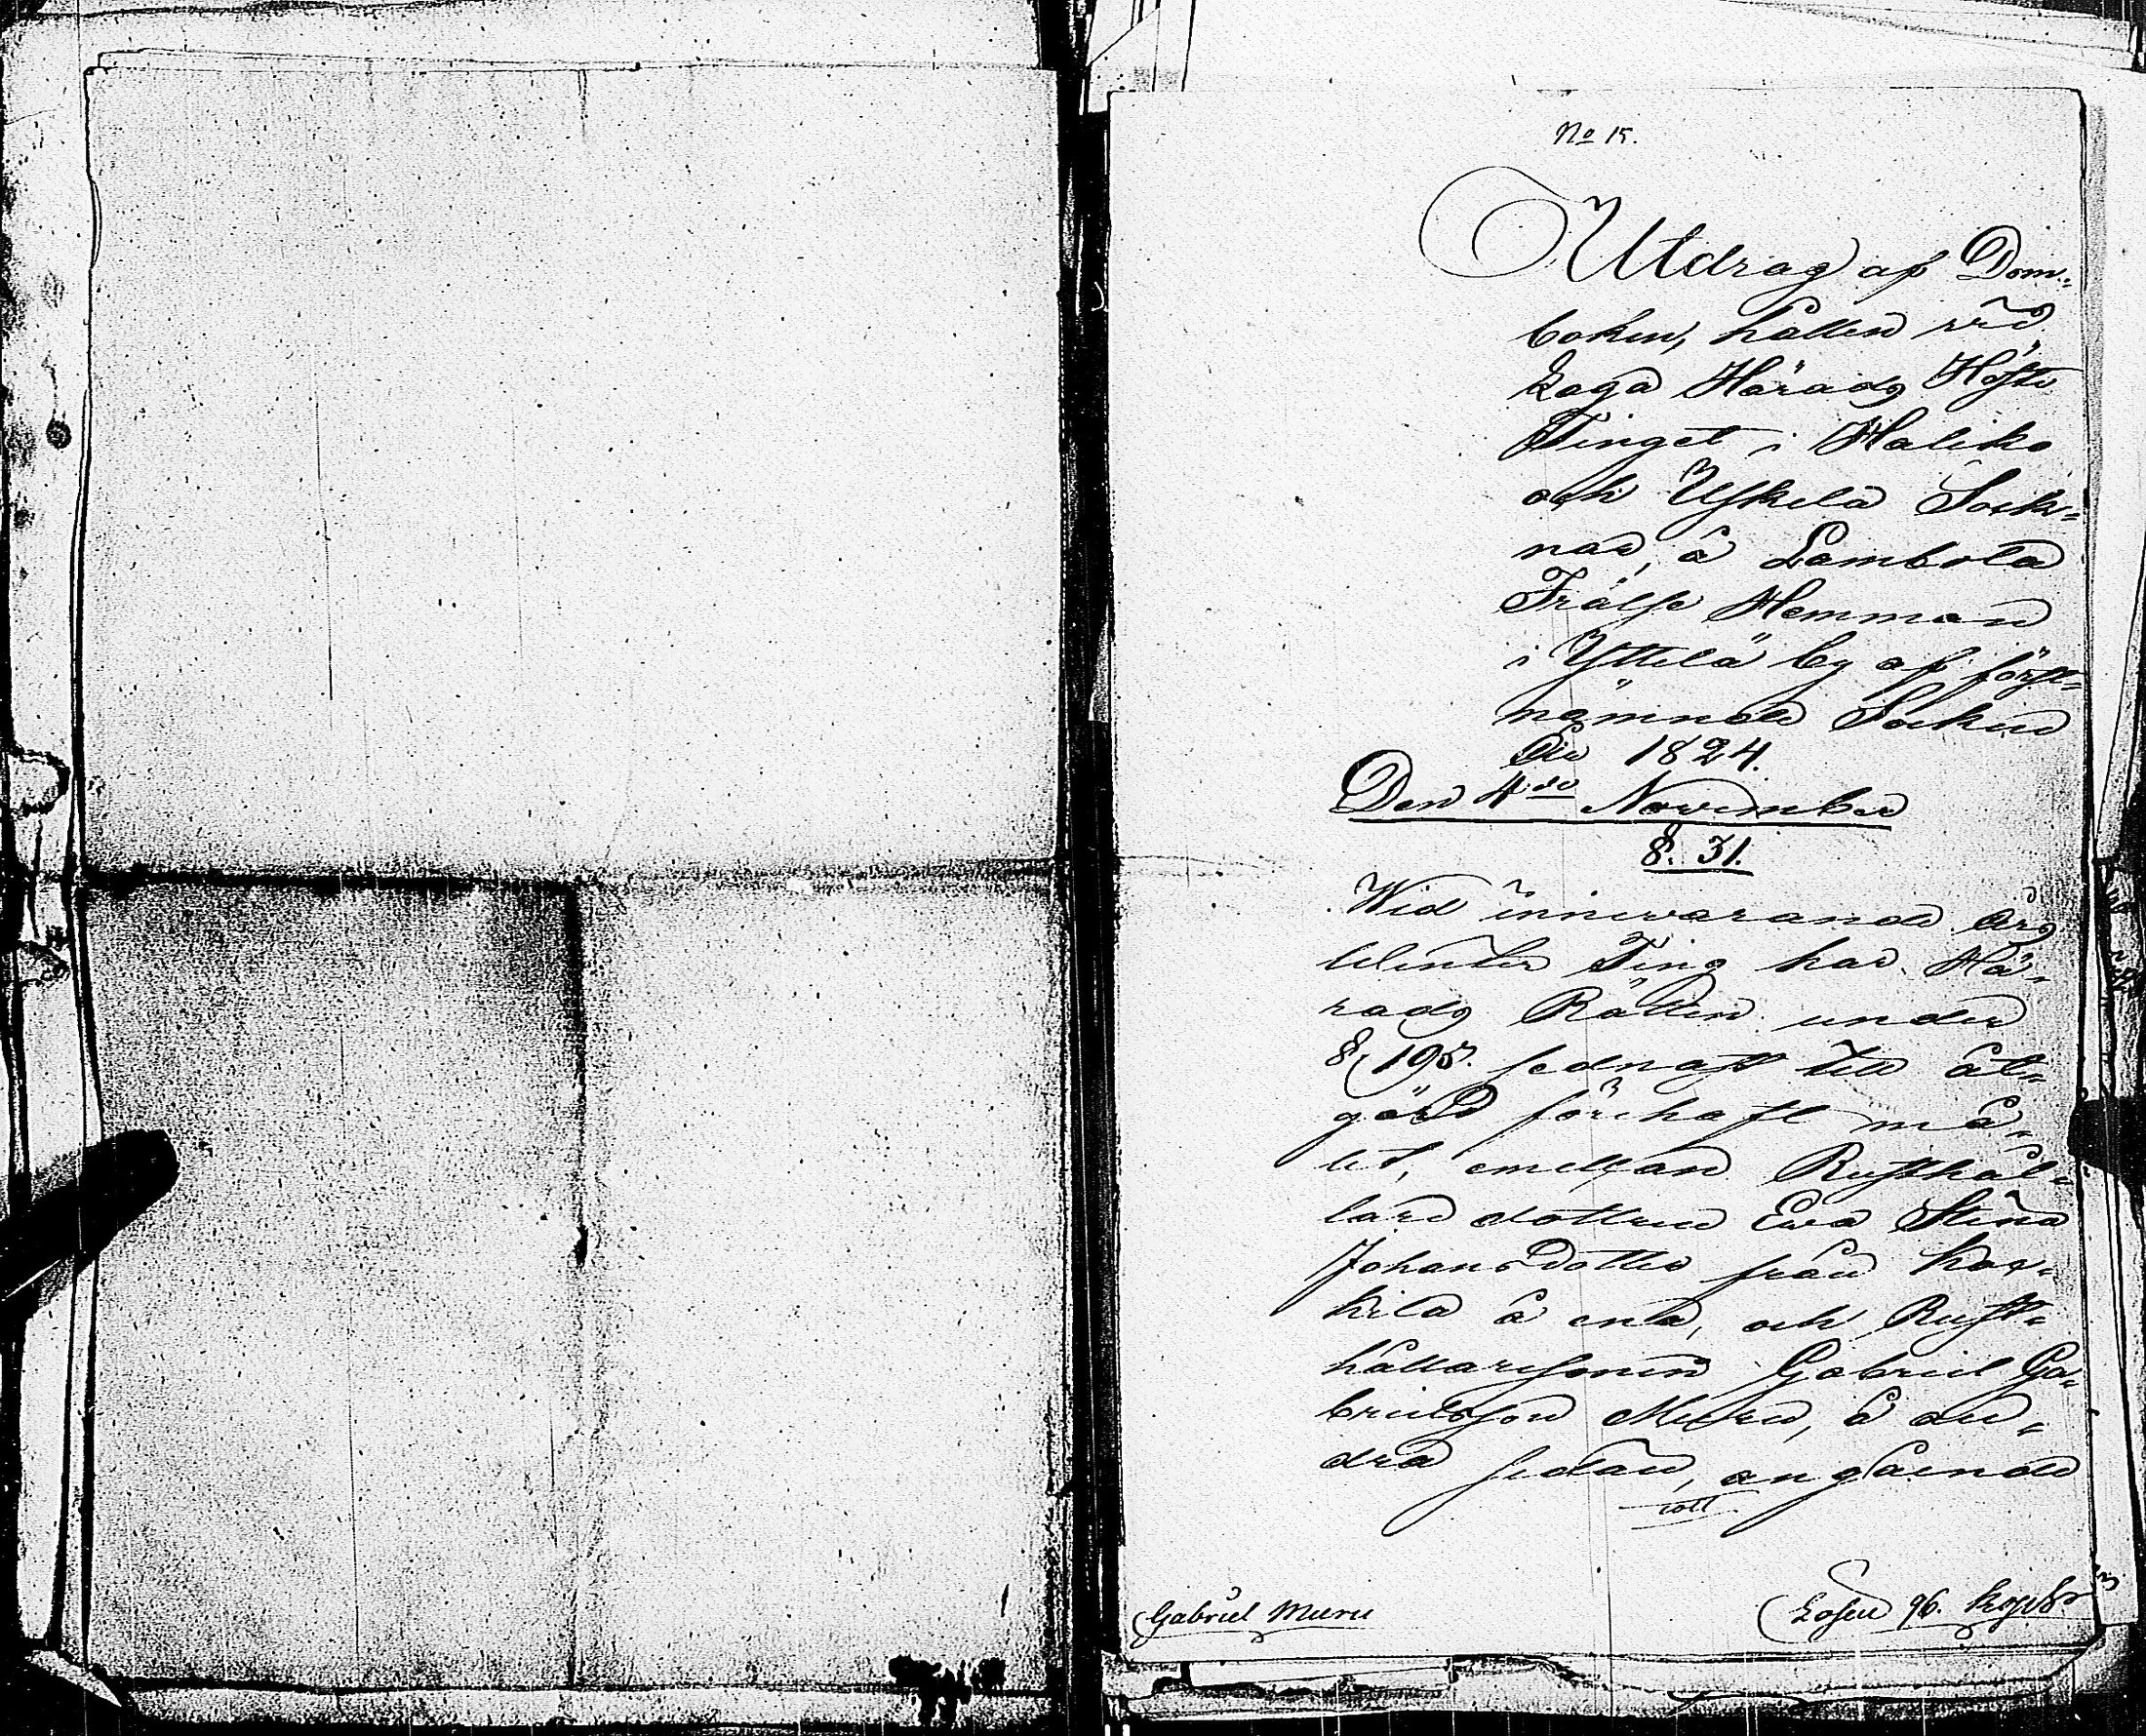 No 15.
Utdrag af Dom-
boken, hållen vid
Laga Härads Höste
Tinget i Haliko
och Uskela Sock-
nar, å Lambola
Frälse Hemman
i Yttelä by af först-
nämnde Socken
År 1824.
Den 4de November
§. 31.
Wid innevarande års
Winter Ting har Hä-
rads Rätten under
§ 195. sednast till åt-
gärd förehaft må-
let, emellan Rusthål-
lare dottren Eva Stina
Johansdotter från Kas-
kila å ena, och Rust-
hållaresonen Gabriel Ga-
brielsson Muru, å an-
dra sidan, angående
Gabriel Muru
Lösen 96. kop. S.